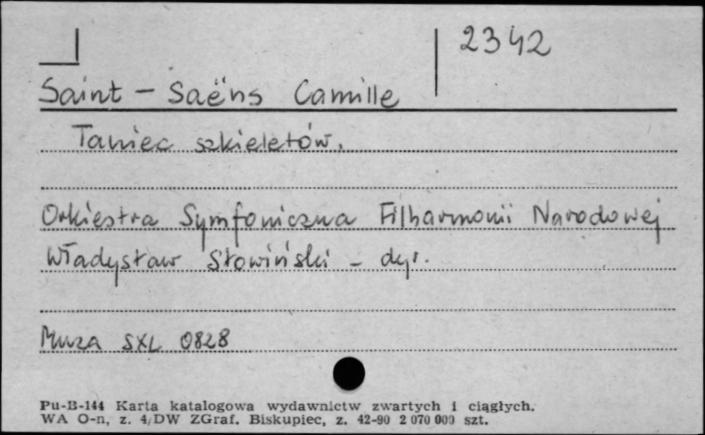 2342
Saint - Saëns Camille
Taniec szkieletów.
Orkiestra Symfoniczna Filharmonii Narodowej
Władysław Słowiński - dyr.
Muza SXL 0828
Pu-B-144 Karta katalogowa wydawnictw zwartych i ciągłych.
WA O-n, z. 4/DW ZGraf. Biskupiec, z. 42-90 2 070 000 szt.